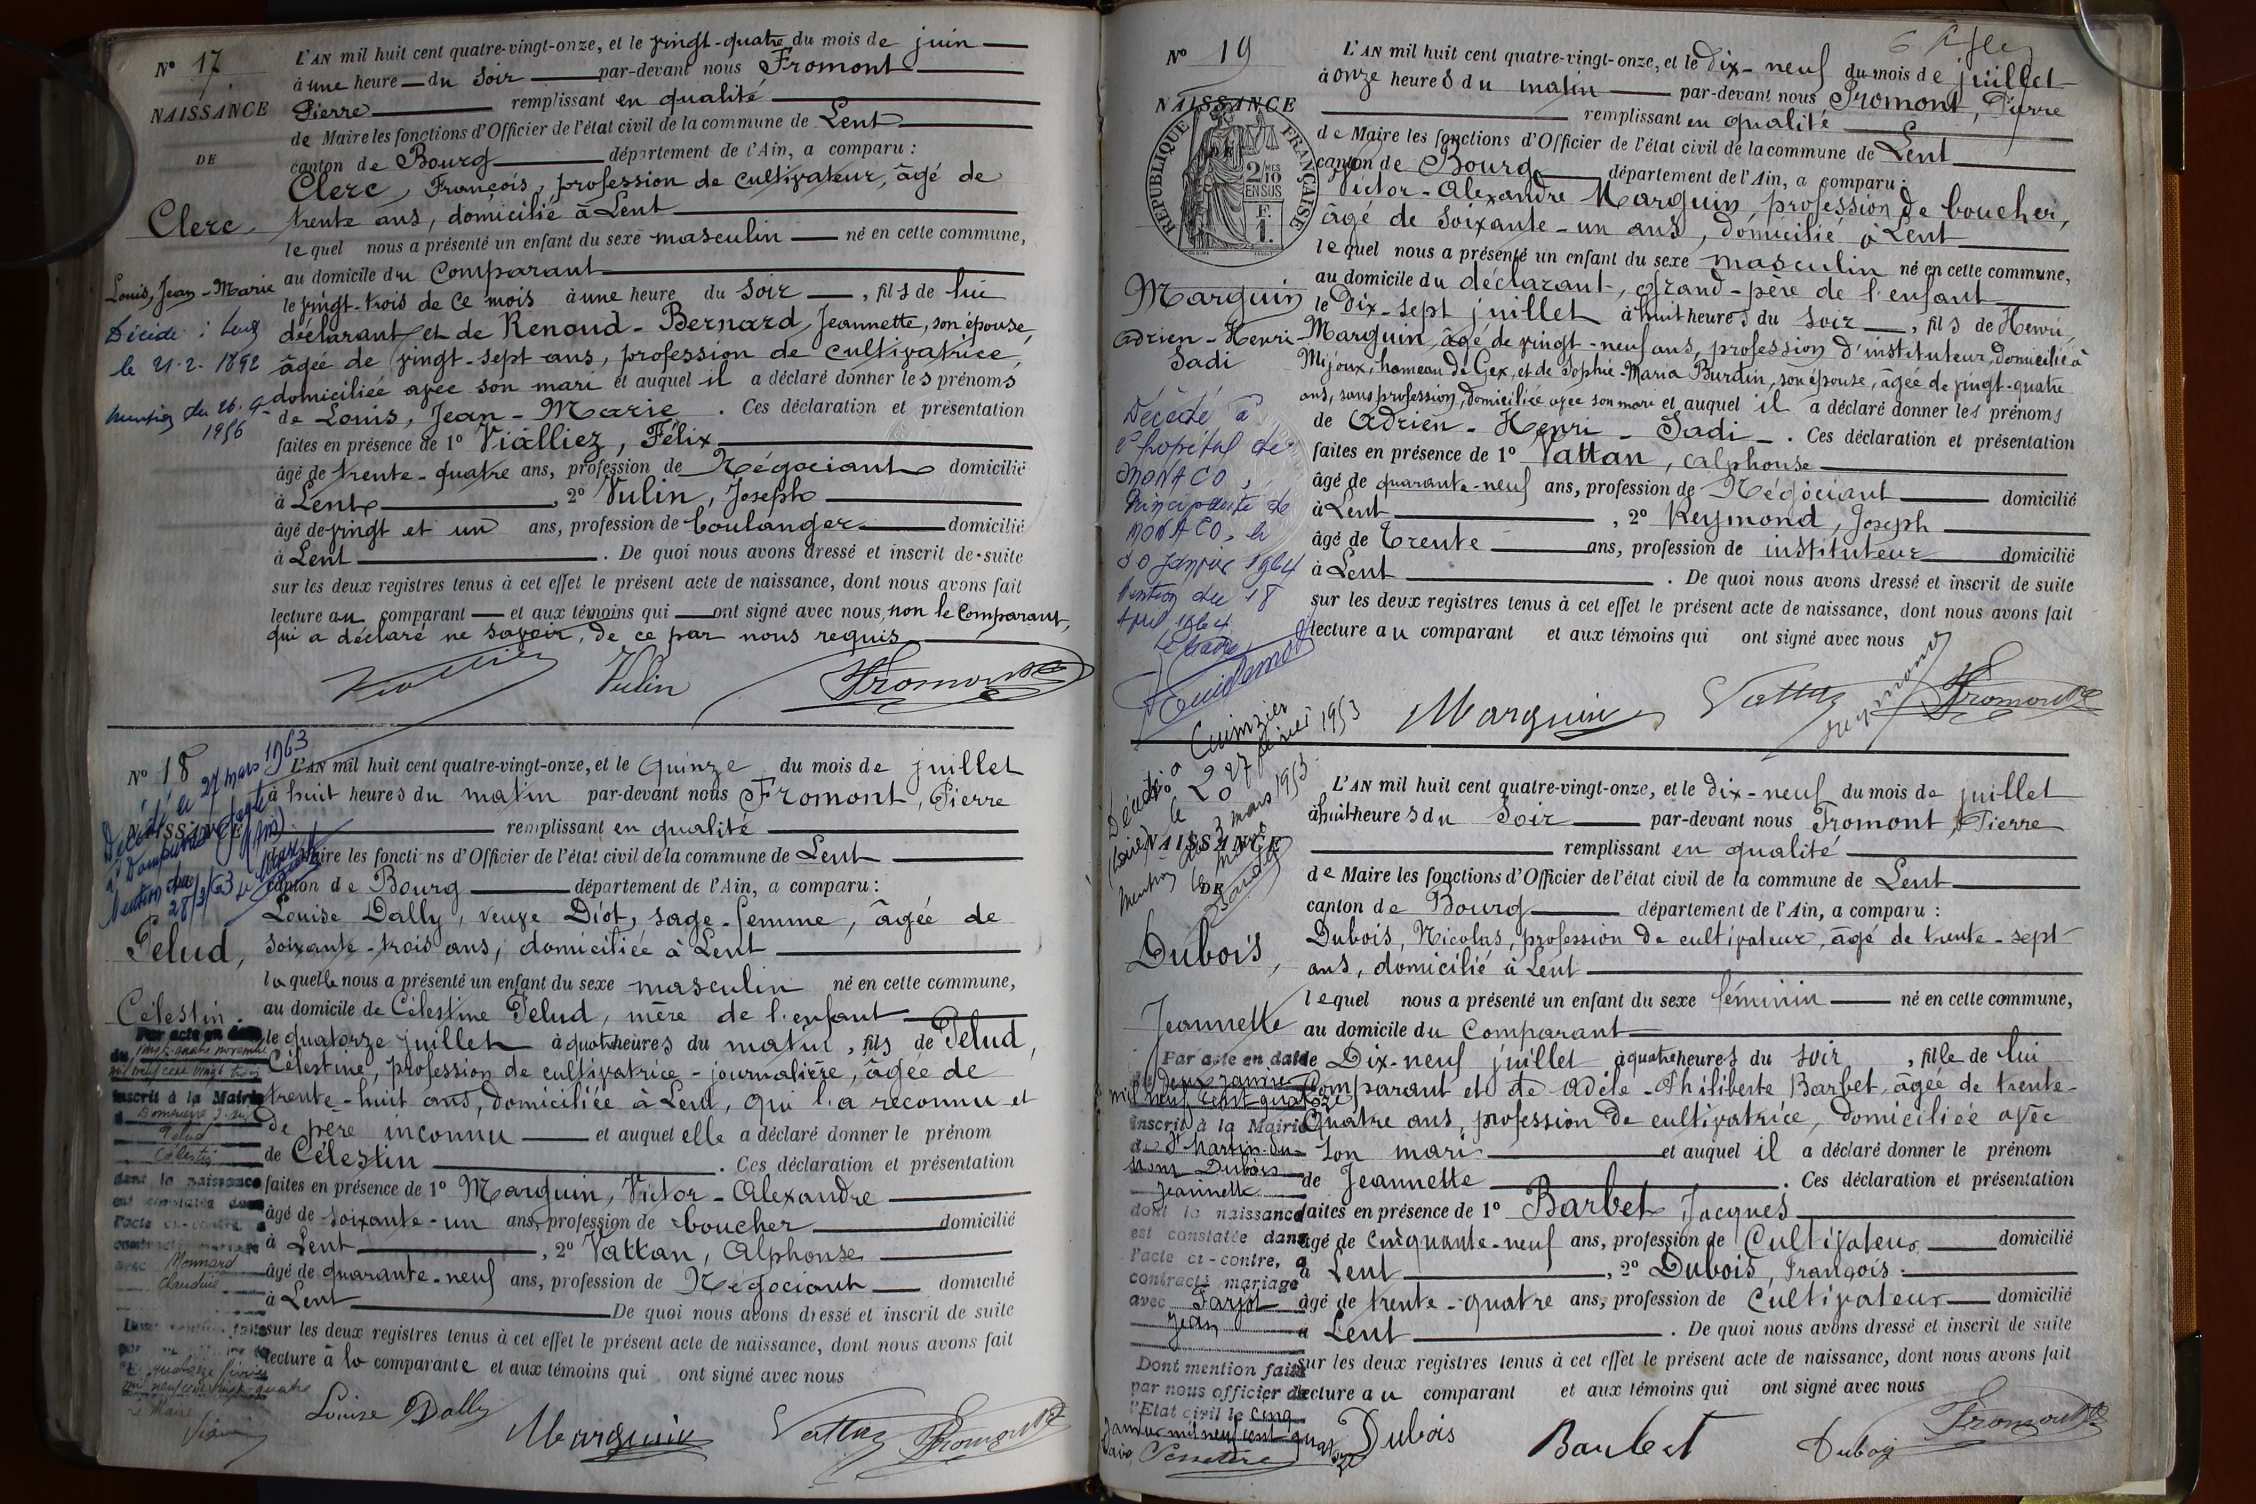 N° 17
NAISSANCE
DE
Clerc
Louis, Jean-Marie
Décédé : Lent
le 21.2.1892
mention du 26.9.
1956
L'AN mil huit cent quatre-vingt-onze, et le vingt-quatre du mois de juin
à une heure du soir par-devant nous Fromont
Pierre remplissant en qualité
de Maire les fonctions d'Officier de l'état civil de la commune de Lent
canton de Bourg département de l'Ain, a comparu :
Clerc, François, profession de cultivateur, âgé de
trente ans, domicilié à Lent
lequel nous a présenté un enfant du sexe masculin né en cette commune,
au domicile du comparant
le vingt-trois de ce mois à une heure du soir, fils de lui
déclarant et de Renoud-Bernard, Jeannette, son épouse,
âgée de vingt-sept ans, profession de cultivatrice,
domiciliée avec son mari et auquel il a déclaré donner les prénoms
de Louis, Jean-Marie. Ces déclaration et présentation
faites en présence de 1° Vialliez, Félix
âgé de trente-quatre ans, profession de Négociant domicilié
à Lent, 2° Vulin, Joseph
âgé de vingt et un ans, profession de boulanger domicilié
à Lent. De quoi nous avons dressé et inscrit de suite
sur les deux registres tenus à cet effet le présent acte de naissance, dont nous avons fait
lecture au comparant et aux témoins qui ont signé avec nous, non le comparant,
qui a déclaré ne savoir, de ce par nous requis
Vulin Fromont
N° 18
NAISSANCE
Décédé le 27 mars 1963
Mention du
28/3/63 Le Maire
Pelud,
Célestin.
Par acte en date
du vingt-quatre novembre
mil neuf cent vingt trois
inscrit à la Mairie
Pelud
Célestin
dont la naissance
est constatée dans
l'acte ci-contre, a
contracté mariage
avec Monnard
Claudine
Dont mention faite
quatorze février
mil neuf cent vingt-quatre
Le Maire
L'AN mil huit cent quatre-vingt-onze, et le quinze du mois de juillet
à huit heures du matin par-devant nous Fromont, Pierre
remplissant en qualité
de Maire les fonctions d'Officier de l'état civil de la commune de Lent
canton de Bourg département de l'Ain, a comparu :
Louise Dally, veuve Diot, sage-femme, âgée de
soixante-trois ans, domiciliée à Lent
laquelle nous a présenté un enfant du sexe masculin né en cette commune,
au domicile de Célestine Pelud, mère de l'enfant
le quatorze juillet à quatre heures du matin, fils de Pelud,
Célestine, profession de cultivatrice-journalière, âgée de
trente-huit ans, domiciliée à Lent, qui l'a reconnu et
de père inconnu et auquel elle a déclaré donner le prénom
de Célestin. Ces déclaration et présentation
faites en présence de 1° Marguin, Victor-Alexandre
âgé de soixante-un ans, profession de boucher domicilié
à Lent, 2° Vattan, Alphonse
âgé de quarante-neuf ans, profession de Négociant domicilié
à Lent De quoi nous avons dressé et inscrit de suite
sur les deux registres tenus à cet effet le présent acte de naissance, dont nous avons fait
lecture à la comparante et aux témoins qui ont signé avec nous
Louise Dally Marguin Vattan Fromont
N° 19
NAISSANCE
RÉPUBLIQUE FRANÇAISE
2/10 EN SUS
F. 1.
Marguin
Adrien-Henri-
Sadi
Décédé à
l'hôpital de
MONACO,
Principauté de
MONACO, le
30 Janvier 1964
Mention du 18
Avril 1964
Le Maire
L'AN mil huit cent quatre-vingt-onze, et le dix-neuf du mois de juillet
à onze heures du matin par-devant nous Fromont, Pierre
remplissant en qualité
de Maire les fonctions d'Officier de l'état civil de la commune de Lent
canton de Bourg département de l'Ain, a comparu :
Victor-Alexandre Marguin, profession de boucher,
âgé de soixante-un ans, domicilié à Lent
lequel nous a présenté un enfant du sexe masculin né en cette commune,
au domicile du déclarant, grand-père de l'enfant
le dix-sept juillet à huit heures du soir, fils de Henri
Marguin, âgé de vingt-neuf ans, profession d'instituteur, domicilié à
Mijoux, hameau de Gex, et de Sophie-Maria Burdin, son épouse, âgée de vingt-quatre
ans, sans profession, domiciliée avec son mari et auquel il a déclaré donner les prénoms
de Adrien-Henri-Sadi. Ces déclaration et présentation
faites en présence de 1° Vattan, Alphonse
âgé de quarante-neuf ans, profession de Négociant domicilié
à Lent, 2° Reymond, Joseph
âgé de trente ans, profession de instituteur domicilié
à Lent. De quoi nous avons dressé et inscrit de suite
sur les deux registres tenus à cet effet le présent acte de naissance, dont nous avons fait
lecture au comparant et aux témoins qui ont signé avec nous
Marguin Vattan Reymond Fromont
N° 20
Décédée à Cuinzier
(Loire) le 27 février 1953
Mention du 3 mars 1953
Le Maire
NAISSANCE
DE
Dubois,
Jeannette
Par acte en date
du deux janvier
mil neuf cent quatorze
inscrit à la Mairie
de St Martin-du-
Mont Dubois
Jeannette
dont la naissance
est constatée dans
l'acte ci-contre, a
contracté mariage
avec Farjot
Jean
Dont mention faite
par nous officier de
l'Etat civil le cinq
janvier mil neuf cent quatorze
L'AN mil huit cent quatre-vingt-onze, et le dix-neuf du mois de juillet
à huit heures du soir par-devant nous Fromont, Pierre
remplissant en qualité
de Maire les fonctions d'Officier de l'état civil de la commune de Lent
canton de Bourg département de l'Ain, a comparu :
Dubois, Nicolas, profession de cultivateur, âgé de trente-sept
ans, domicilié à Lent
lequel nous a présenté un enfant du sexe féminin né en cette commune,
au domicile du comparant
le Dix-neuf juillet à quatre heures du soir, fille de lui
comparant et de Adèle-Philiberte Barbet, âgée de trente-
quatre ans, profession de cultivatrice, domiciliée avec
son mari et auquel il a déclaré donner le prénom
de Jeannette. Ces déclaration et présentation
faites en présence de 1° Barbet Jacques
âgé de cinquante-neuf ans, profession de Cultivateur domicilié
à Lent, 2° Dubois, François
âgé de trente-quatre ans, profession de Cultivateur domicilié
à Lent. De quoi nous avons dressé et inscrit de suite
sur les deux registres tenus à cet effet le présent acte de naissance, dont nous avons fait
lecture au comparant et aux témoins qui ont signé avec nous
Dubois Barbet Dubois Fromont